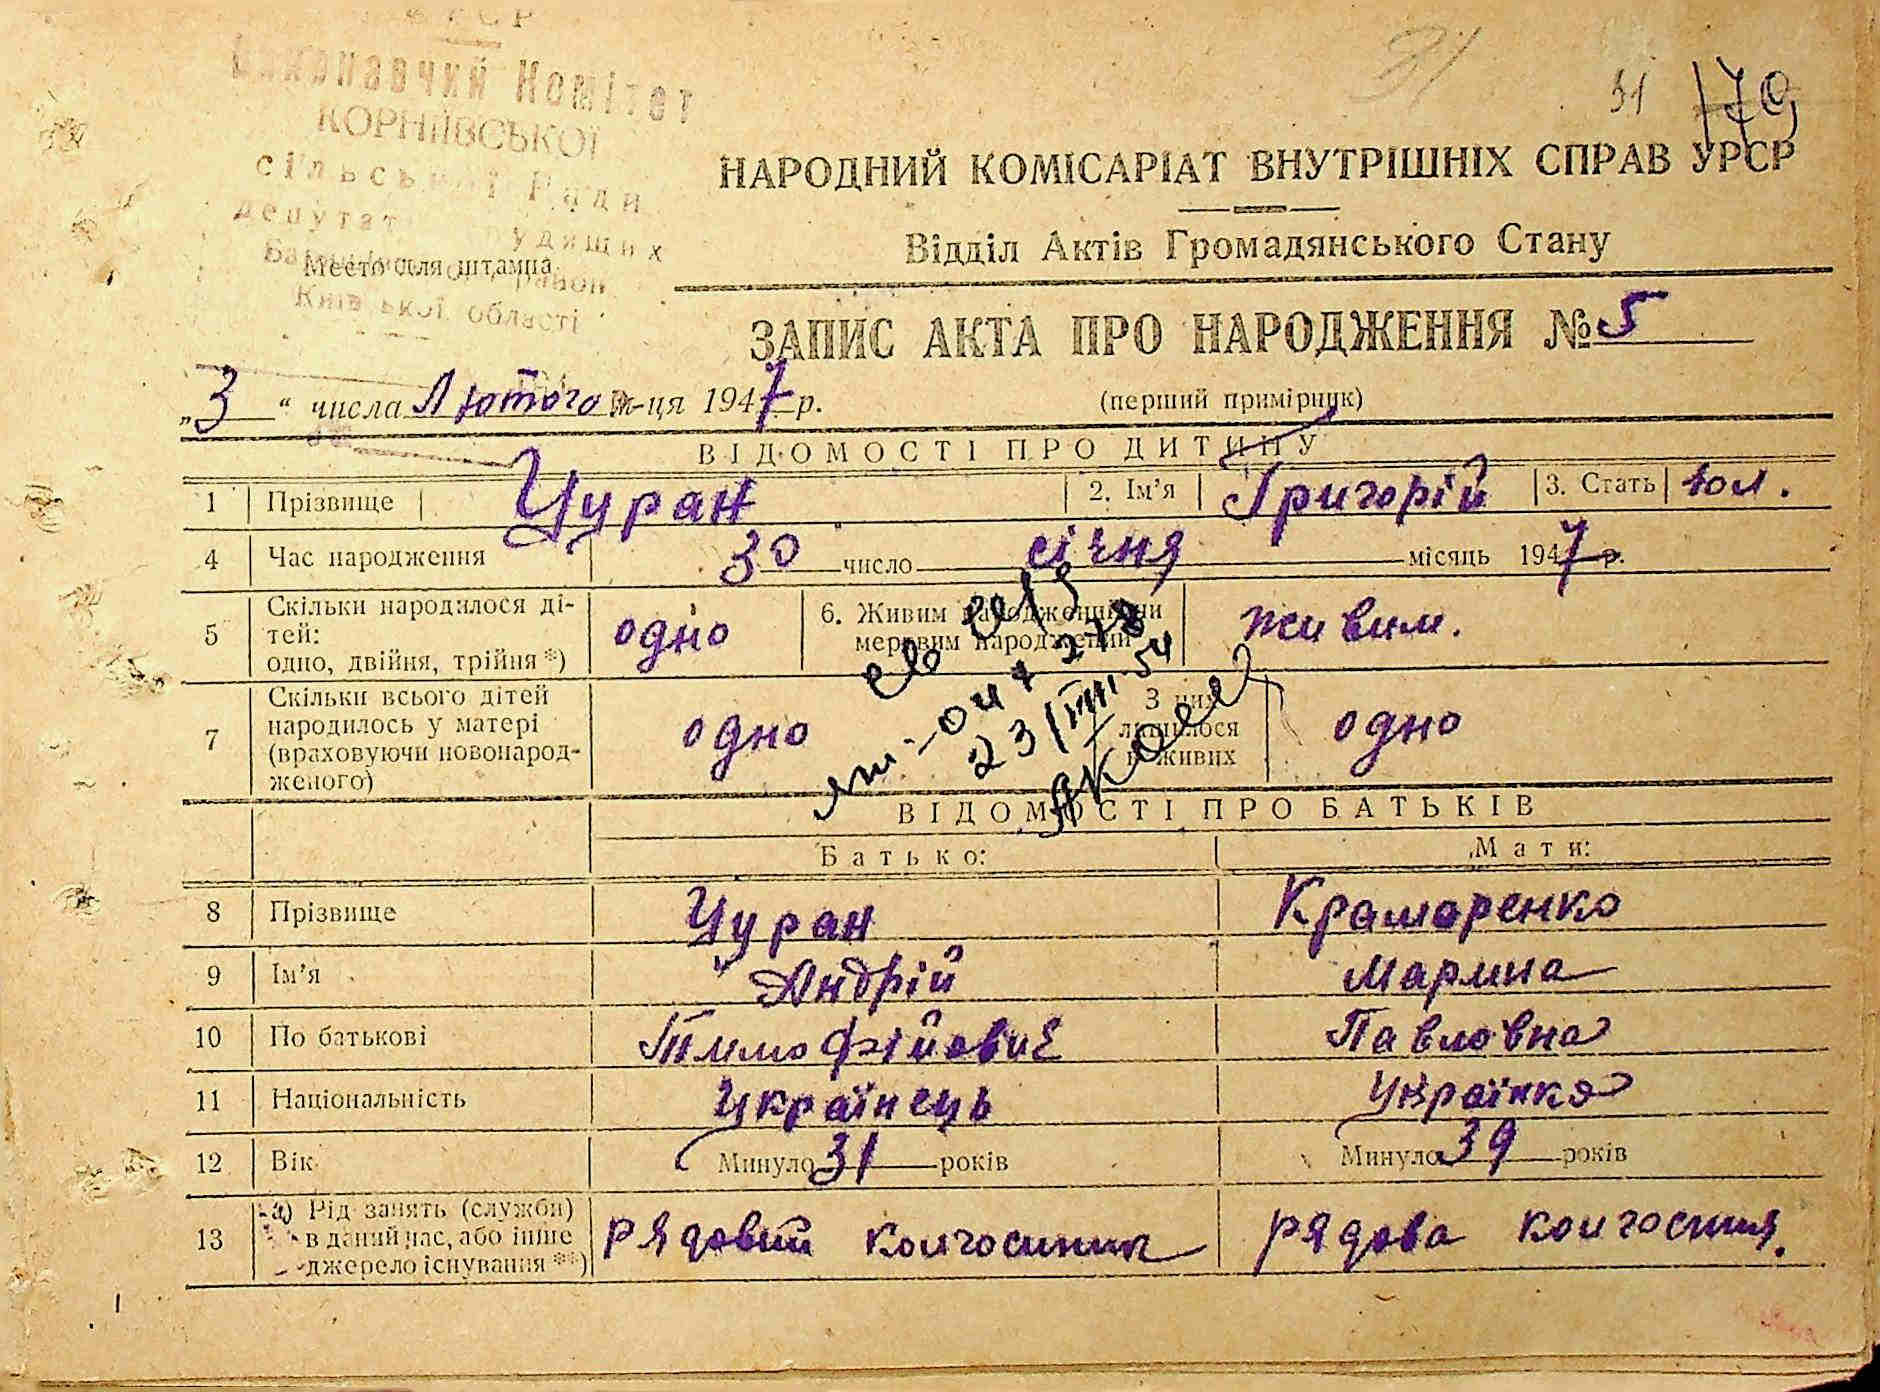 УРСР
Виконавчий Комітет
КОРНІЇВСЬКОЇ
сільської Ради
депутат трудящих
район
Київської області
Место для штампа
31
31 179
НАРОДНИЙ КОМІСАРІАТ ВНУТРІШНІХ СПРАВ УРСР
Відділ Актів Громадянського Стану
ЗАПИС АКТА ПРО НАРОДЖЕННЯ № 5
„3“ числа Лютого м-ця 1947 р. (перший примірник)
ВІДОМОСТІ ПРО ДИТИНУ
1 Прізвище Цуран 2. Ім’я Григорій 3. Стать чол.
4 Час народження 30 число січня місяць 1947 р.
5 Скільки народилося ді-
тей:
одно, двійня, трійня*) одно 6. Живим народжений чи
мертвим народжений живим.
7 Скільки всього дітей
народилось у матері
(враховуючи новонарод-
женого) одно З них
лишилося
в живих одно
23/VIII-54
ВІДОМОСТІ ПРО БАТЬКІВ
Батько: Мати:
8 Прізвище Цуран Крамаренко
9 Ім’я Андрій Марина
10 По батькові Тимофійович Павловна
11 Національність Українець Українка
12 Вік Минуло 31 років Минуло 39 років
13 а) Рід занять (служби)
в даний час, або інше
джерело існування**) рядовий колгоспник рядова колгоспниця.